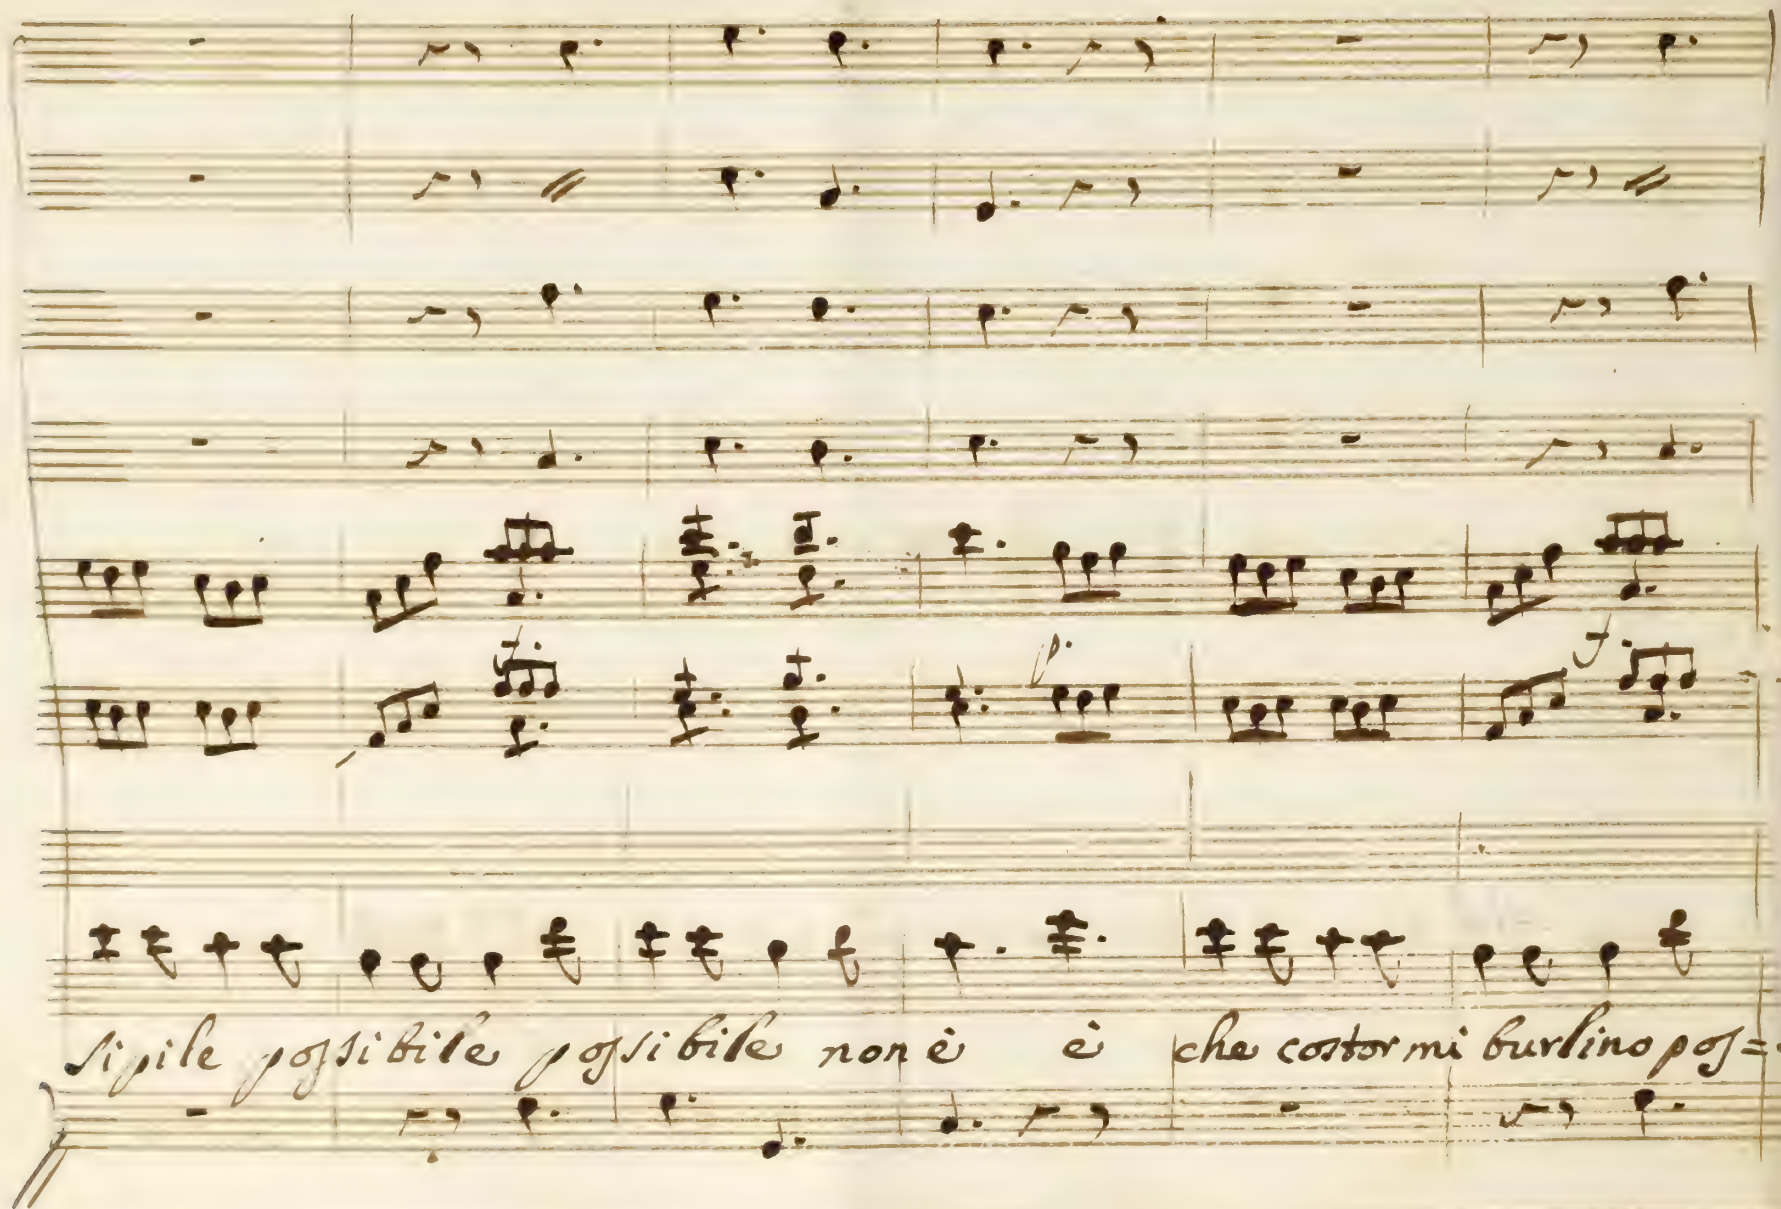 f.
p.
f.
sipile possibile possibile non è è che costor mi burlino pos=